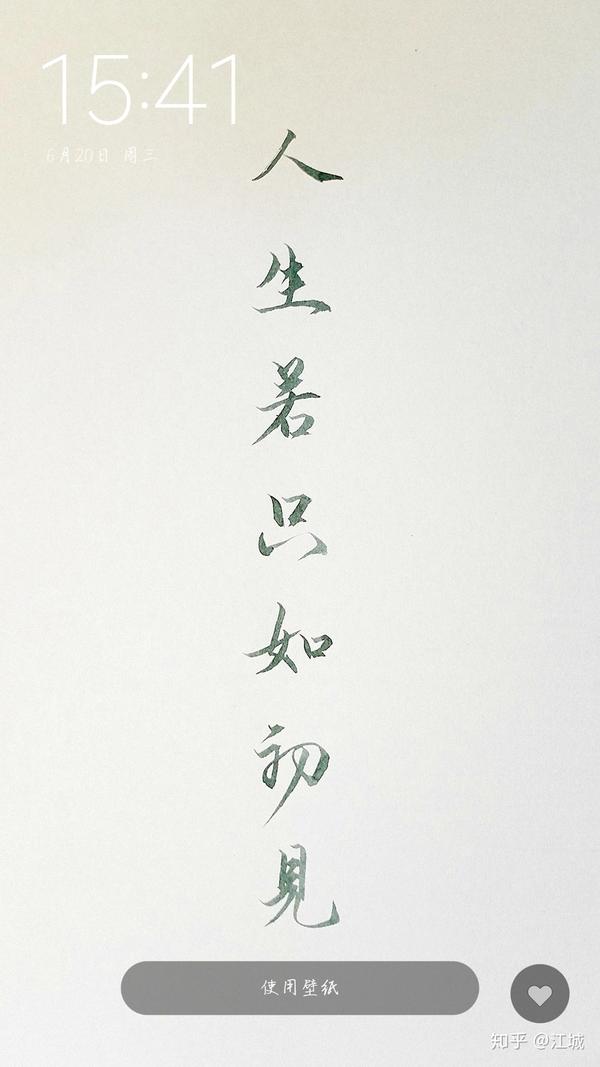 15:41
6月20日 周三
人生若只如初見
使用壁纸
知乎 @江城